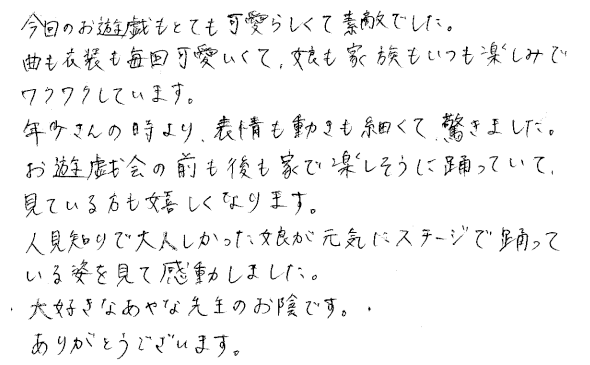 今回のお遊戯もとても可愛らしくて素敵でした。
曲も衣装も毎回可愛いくて、娘も家族もいつも楽しみで
ワクワクしています。
年少さんの時より、表情も動きも細くて、驚きました。
お遊戯会の前も後も家で楽しそうに踊っていて、
見ている方も嬉しくなります。
人見知りで大人しかった娘が元気にステージで踊って
いる姿を見て感動しました。
大好きなあやな先生のお陰です。
ありがとうございます。